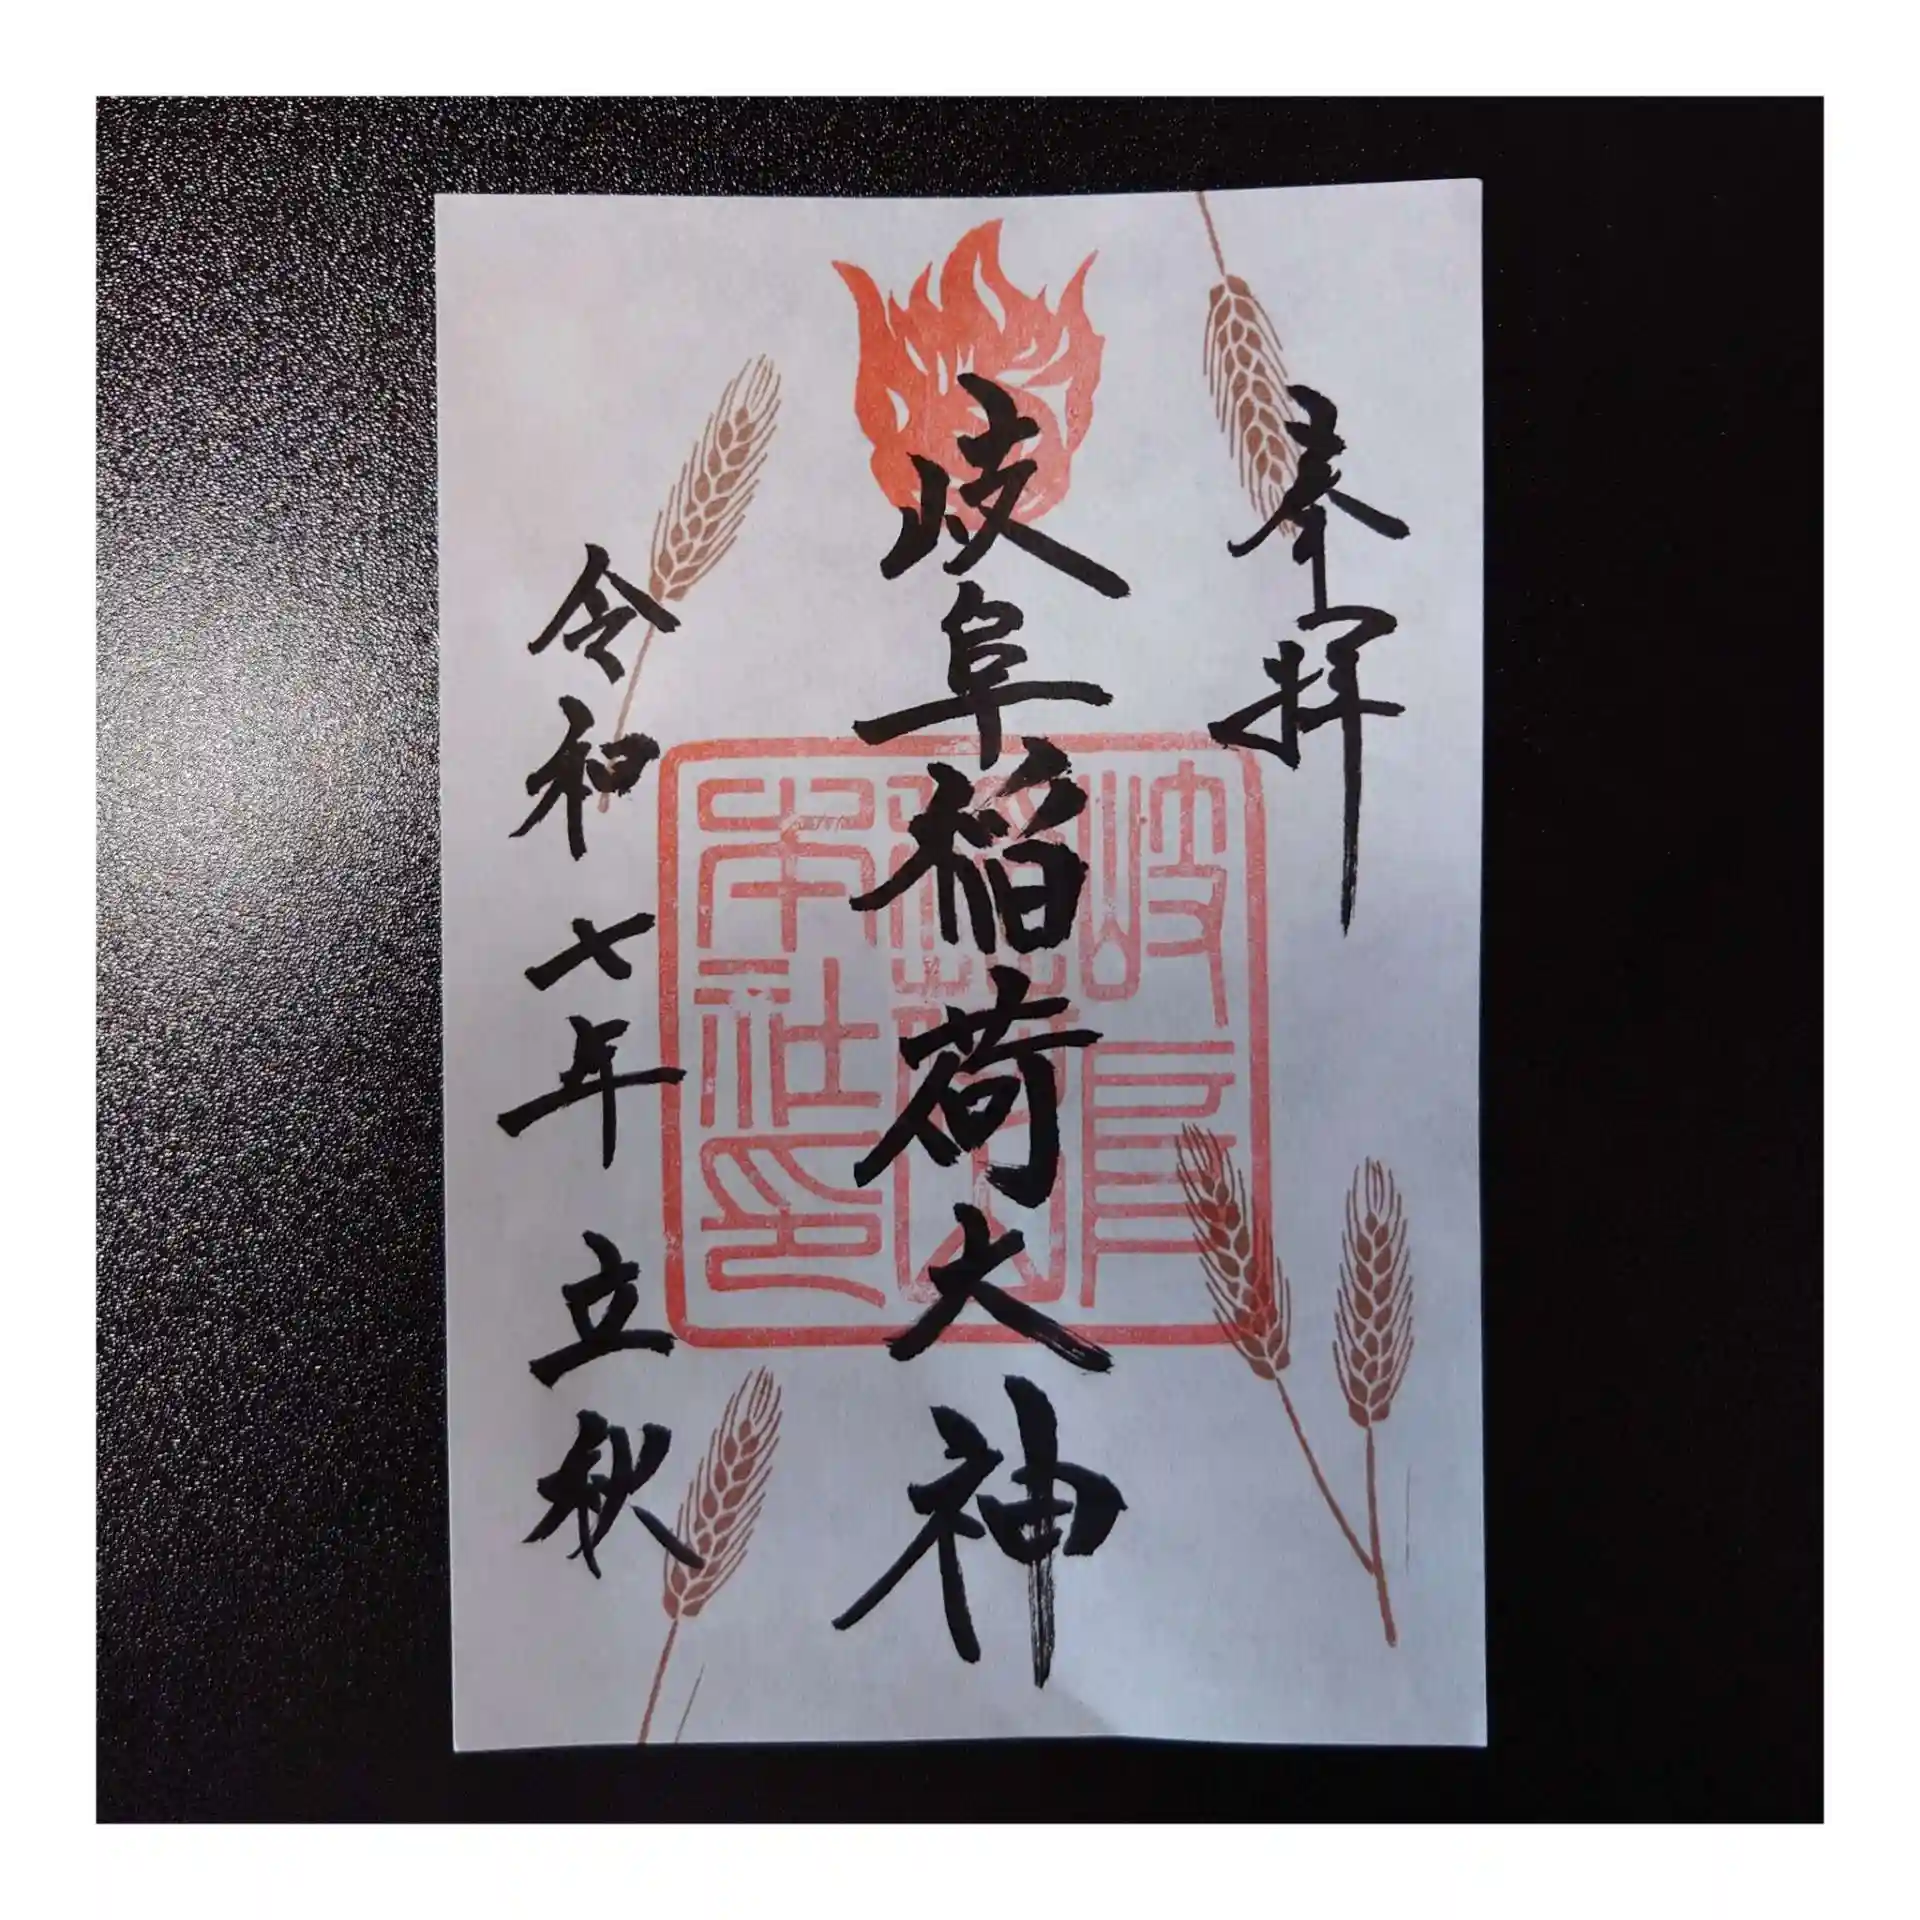 奉拝
岐阜稲荷大神
令和七年 立秋
岐阜
稲荷山
本社印